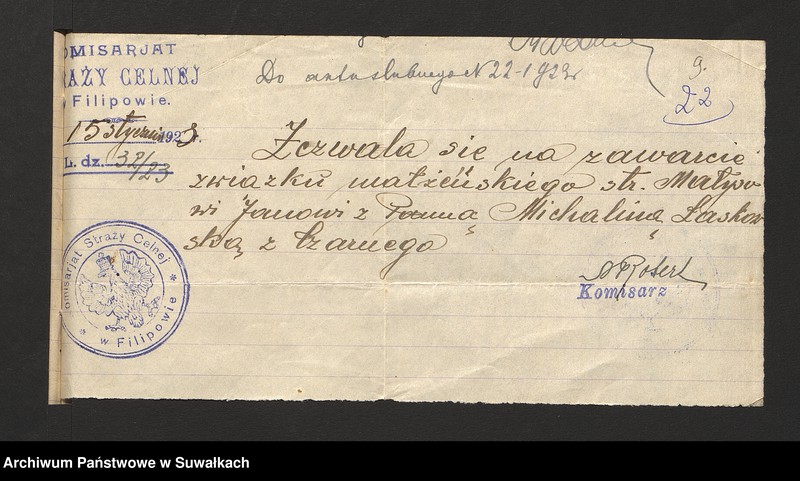 OMISARJAT
RAŻY CELNEJ
Filipowie.
15 stycznia 1923 r.
L. dz. 32/23
Do aktu ślubnego N 22-1923r
9.
22
Zezwala się na zawarcie
związku małżeńskiego str. Matyso-
wi Janowi z Panną Michaliną Łaskow-
ską z Czarnego
Komisarz
omisarjat Straży Celnej
* w Filipowie *
Archiwum Państwowe w Suwałkach